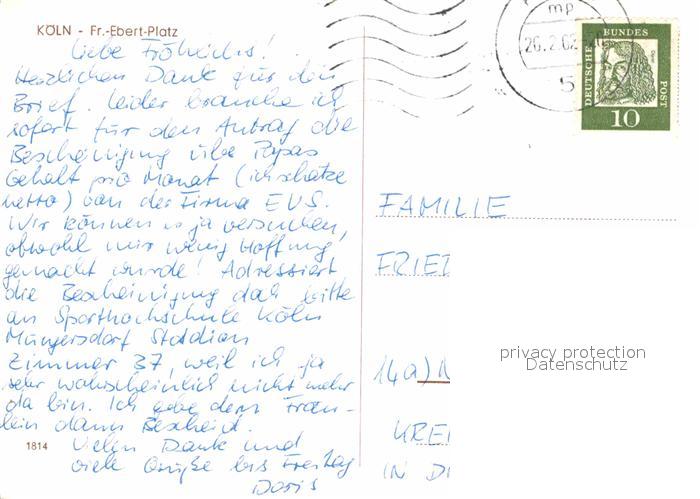 KÖLN - Fr.-Ebert-Platz
Liebe Fröhlichs!
Herzlichen Dank für den
Brief. Leider brauche ich
sofort für den Antrag die
Bescheinigung über Papas
Gehalt pro Monat (ich schätze
netto) von der Firma EVS.
Wir können es ja versuchen,
obwohl mir wenig Hoffnung
gemacht wurde! Adressiert
die Bescheinigung doch bitte
an Sporthochschule Köln
Müngersdorf Stadion
Zimmer 37, weil ich ja
sehr wahrscheinlich nicht mehr
da bin. Ich gebe dem Fräu-
lein dann Bescheid.
Vielen Dank und
viele Grüße bis Freitag
Doris
1814
mp
26.2.62
5
DEUTSCHE BUNDES POST
10
FAMILIE
FRIED
14a)
KREI
IN D
privacy protection
Datenschutz